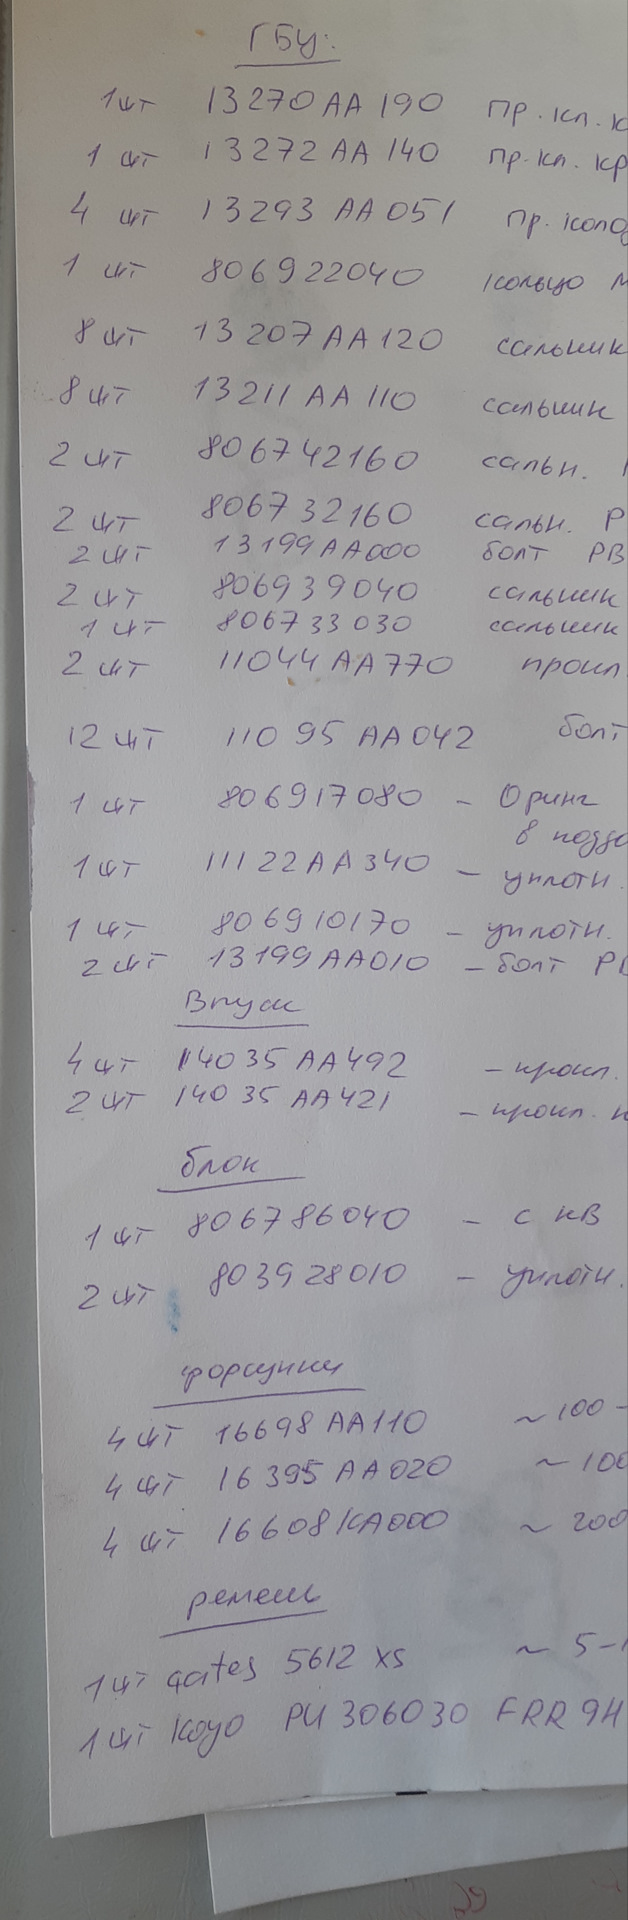 ГБЦ:
1 шт 13270AA190 пр. кл. к
1 шт 13272AA140 пр. кл. кр
4 шт 13293 AA051 пр. колод
1 шт 806922040 кольцо М
8 шт 13207AA120 сальник
8 шт 13211 AA 110 сальник
2 шт 806742160 сальн.
2 шт 806732160 сальн. Р
2 шт 13199AA000 болт РВ
2 шт 806939040 сальник
1 шт 806733030 сальник
2 шт 11044AA770 прокл.
12 шт 11095 AA042 болт
1 шт 806917080 - Оринг
в подд
1 шт 11122AA340 - уплотн.
1 шт 806910170 - уплотн.
2 шт 13199AA010 - болт РВ
Впуск
4 шт 14035AA492 - прокл.
2 шт 14035 AA421 - прокл. к
блок
1 шт 806786040 - с кв
2 шт 803928010 - уплотн.
форсунки
4 шт 16698 AA110 ~ 100 -
4 шт 16395 AA020 ~ 100
4 шт 16608KA000 ~ 200
ремень
1 шт gates 5612 xs ~ 5-
1 шт Koyo PU 306030 FRR 9H